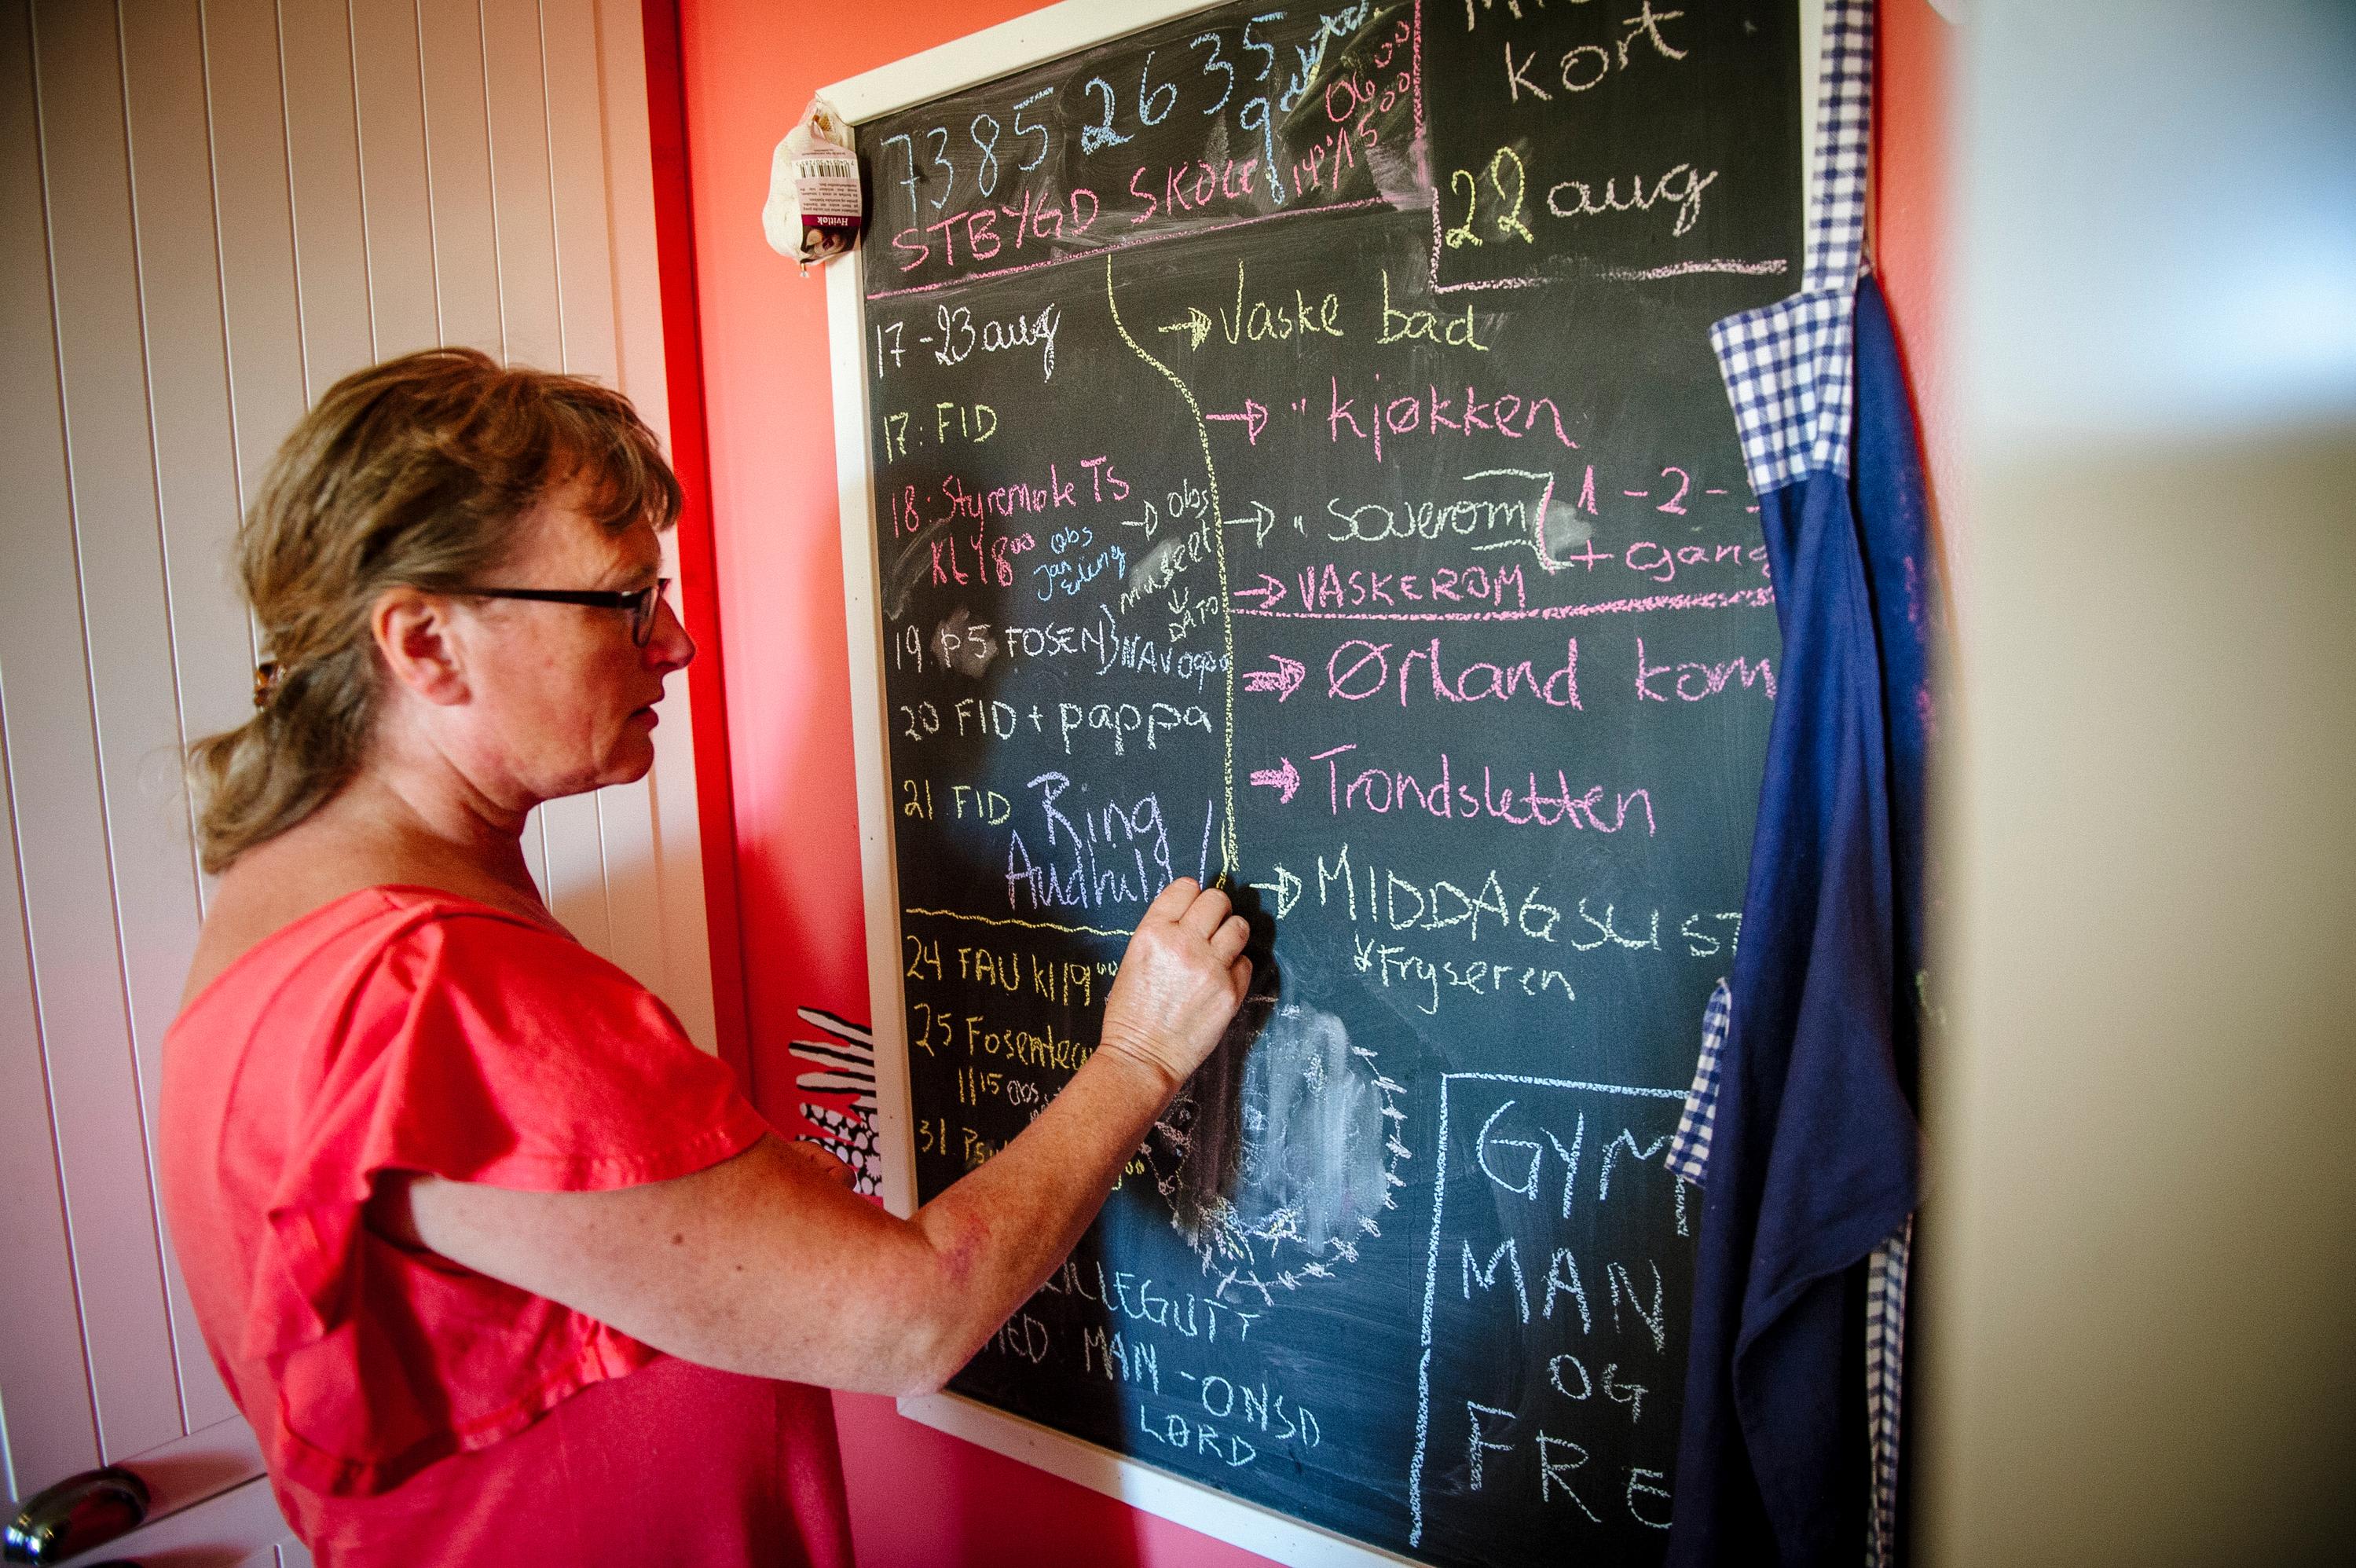 73852635
STBYGD SKOLE
kort
22 aug
17-23 aug
17: FID
18: Styremøte TS
KL 18⁰⁰ obs
→ obs
19. p5 FOSEN} NAV
DATO
20 FID + pappa
21 FID Ring
Audhild
24 FAU kl 19⁰⁰
25
11¹⁵ obs
31.
→ Vaske bad
→ " kjøkken
→ " soverom { 1 - 2 -
+ gang
→ VASKEROM
⇒ Ørland kom
⇒ Trondsletten
→ MIDDAGSLIST
↓ Fryseren
LILLEGUTT
MED MAN - ONSD
LØRD
GYM
MAN
OG
FRE
Hvitløk